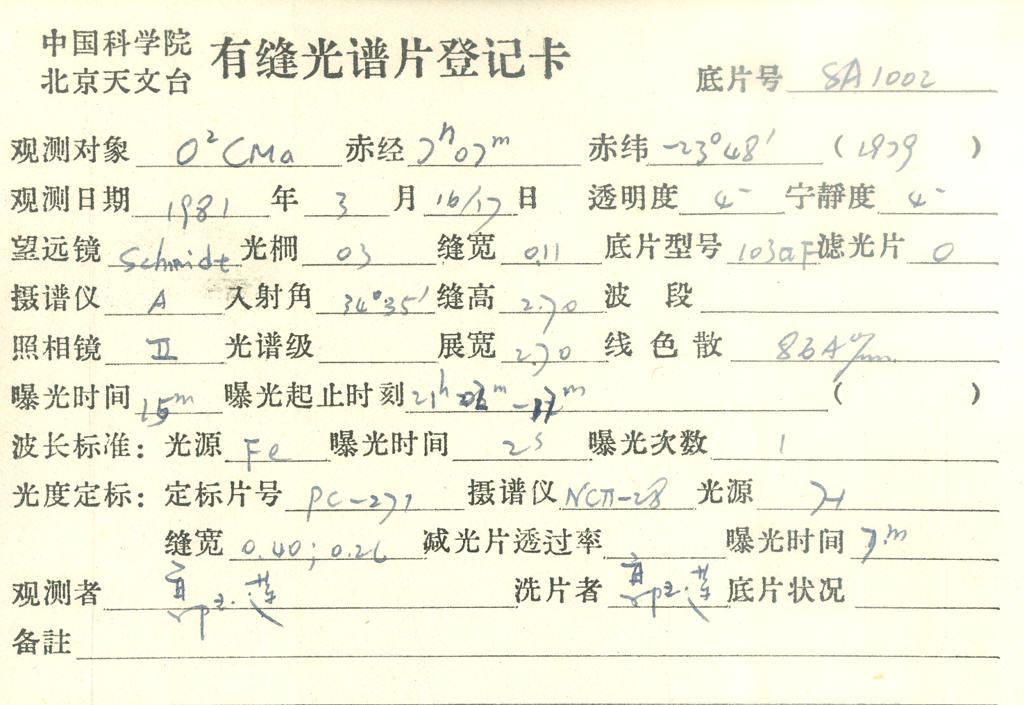 中国科学院
北京天文台 有缝光谱片登记卡 底片号 SA1002
观测对象 O²CMa 赤经 7ʰ07ᵐ 赤纬 -23°48′ (1979)
观测日期 1981 年 3 月 16/17 日 透明度 4⁻ 宁静度 4⁻
望远镜 Schmidt 光栅 03 缝宽 0.11 底片型号 103aF 滤光片 0
摄谱仪 A 入射角 34°35′ 缝高 2.70 波段
照相镜 II 光谱级 展宽 2.70 线色散 83A°/mm
曝光时间 15ᵐ 曝光起止时刻 21ʰ02ᵐ-17ᵐ ( )
波长标准: 光源 Fe 曝光时间 2ˢ 曝光次数 1
光度定标: 定标片号 PC-271 摄谱仪 NCП-28 光源 H
缝宽 0.40; 0.26 减光片透过率 曝光时间 7ᵐ
观测者 洗片者 底片状况
备註